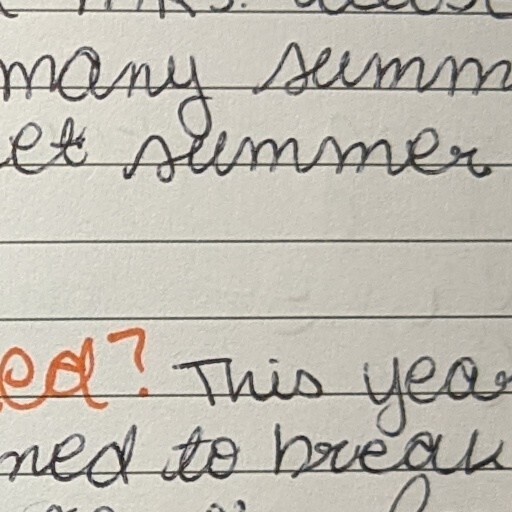 many summ
et summer
ed? This yea
ned to break